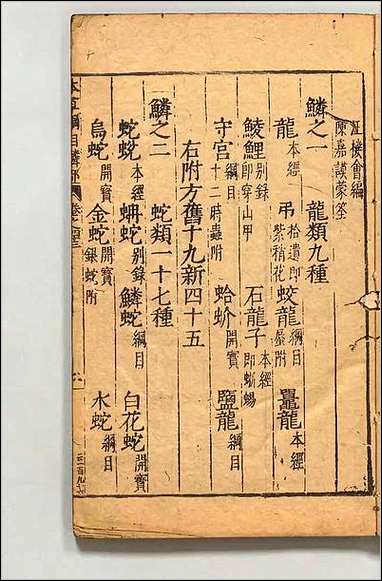 汪機會編
陳嘉謨蒙筌
鱗之一 龍類九種
龍本經 弔拾遺即紫稍花 蛟龍綱目蜃附 鼉龍本經
鯪鯉别錄即穿山甲 石龍子本經即蜥蜴
守宮綱目十二時蟲附 蛤蚧開寶 鹽龍綱目
右附方舊十九新四十五
鱗之二 蛇類一十七種
蛇蛻本經 蚺蛇别錄 鱗蛇綱目 白花蛇開寶
烏蛇開寶 金蛇開寶銀蛇附 水蛇綱目
本草綱目鱗部